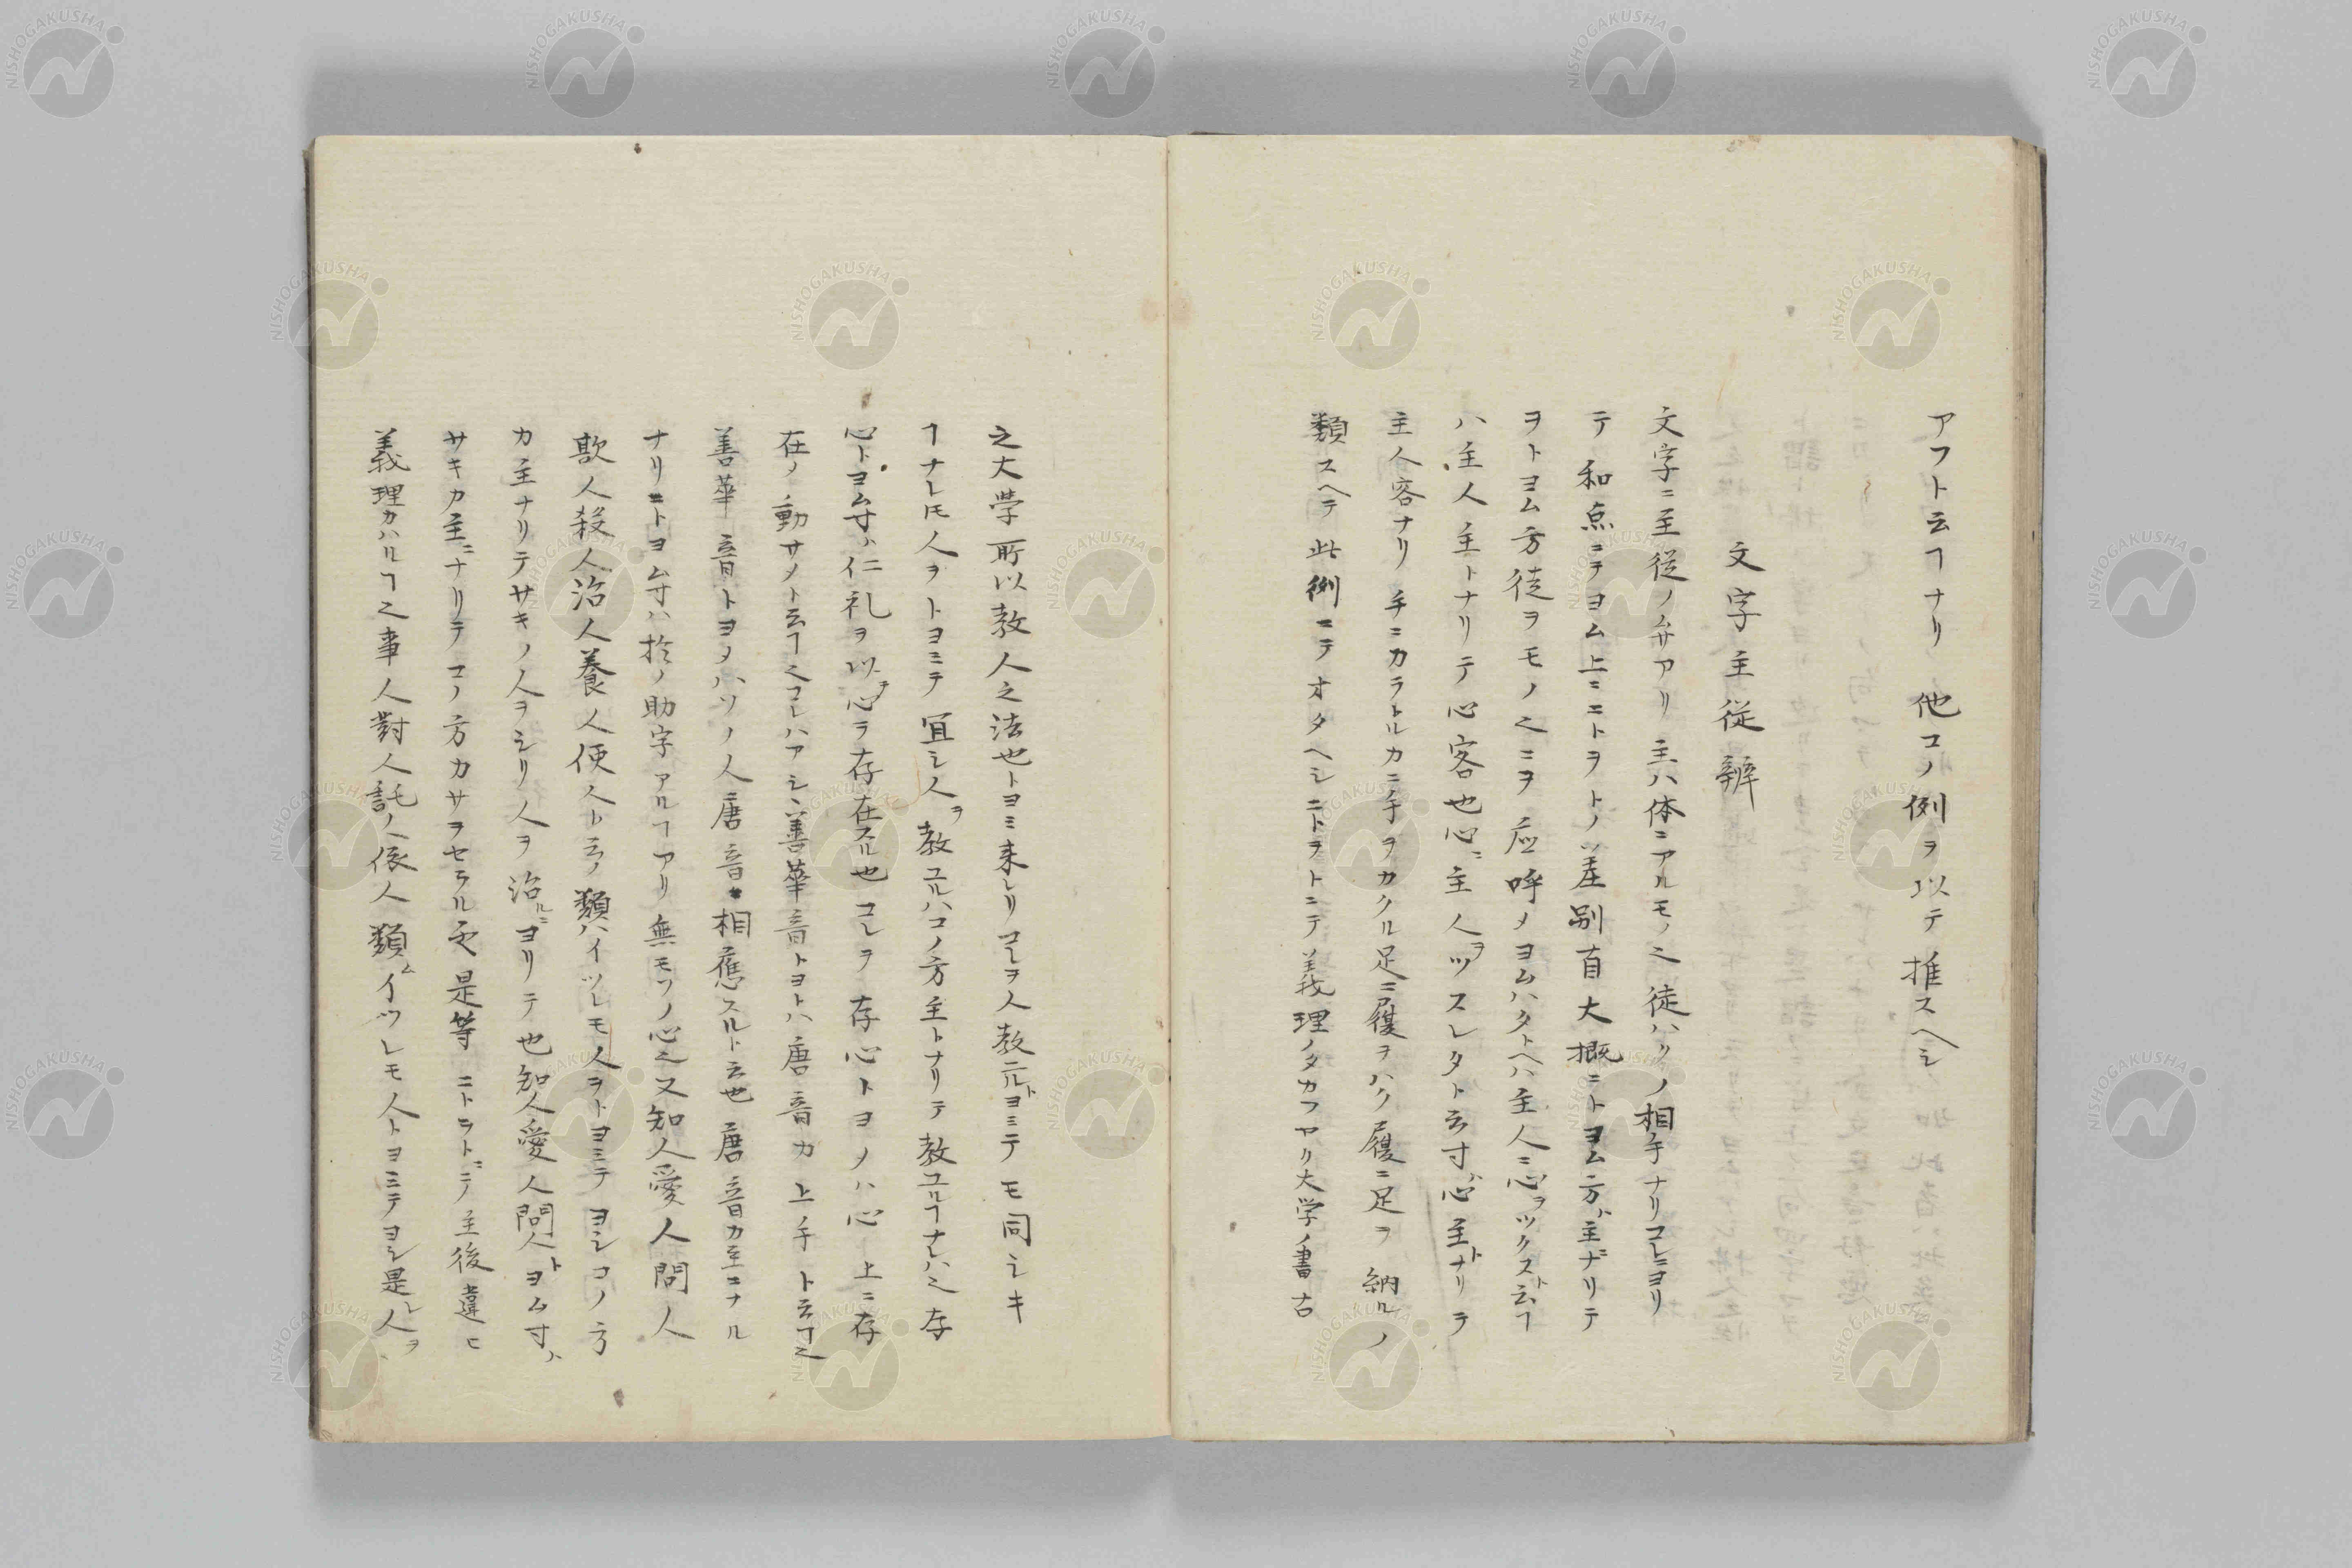 アフト云ヿナリ 他コノ例ヲ以テ推スヘシ
文字主従辨
文字ニ主従ノ弁アリ主ハ体ニアルモノ之従ハソノ相手ナリコレニヨリ
テ和点ニテヨム上ニニトヲトノ差別有大概ニトヨム方ハ主ナリテ
ヲトヨム方徒ヲモノ之ニヲ应呼メヨムハタトヘハ主人ニ心ヲツクスト云ヿ
ハ主人主トナリテ心客也心ニ主人ヲツスレタト云寸ハ心主トナリテ
主人客ナリ手ニカラトルカニ手ヲカクル足ニ履ヲハク履ニ足ヲ納ルノ
類スヘテ此例ニテオタヘシニトヲトニテ義理ノタカフアリ大学ノ書古
之大學所以教人之法也トヨミ来レリコレヲ人教ユルトヨミテモ同シキ
ヿナレ𪜈人ヲトヨミテ冝シ人ヲ教ユルハコノ方主トナリテ教ユルヿナレハ之存
心トヨム寸ハ仁礼ヲ以テ心ヲ存在スル也コレヲ存心トヨメハ心上ニ存
在ノ動サメト云ヿ之コレハアシヽ善華音トヨトハ唐音カ上手ト云ヿ之
善華音トヨメハソノ人ニ唐音相應スルト云也唐音カ主ニナル
ナリニトヨム寸ハ於ノ助字アルヿアリ無モソノ心之又知人愛人問人
欺人殺人治人養人使人ト云ノ類ハイツレモ人ヲトヨミテヨシコノ方
カ主ナリテサキノ人ヲシリ人ヲ治ルニヨリテ也知人愛人問人トヨム寸ハ
サキカ主ニナリテコノ方カサヲセラル是等ニトヲトニテ主後違ヒ
義理カハルヿ之事人對人託人依人類イツレモ人トヨミテヨシ是レ人ヲ